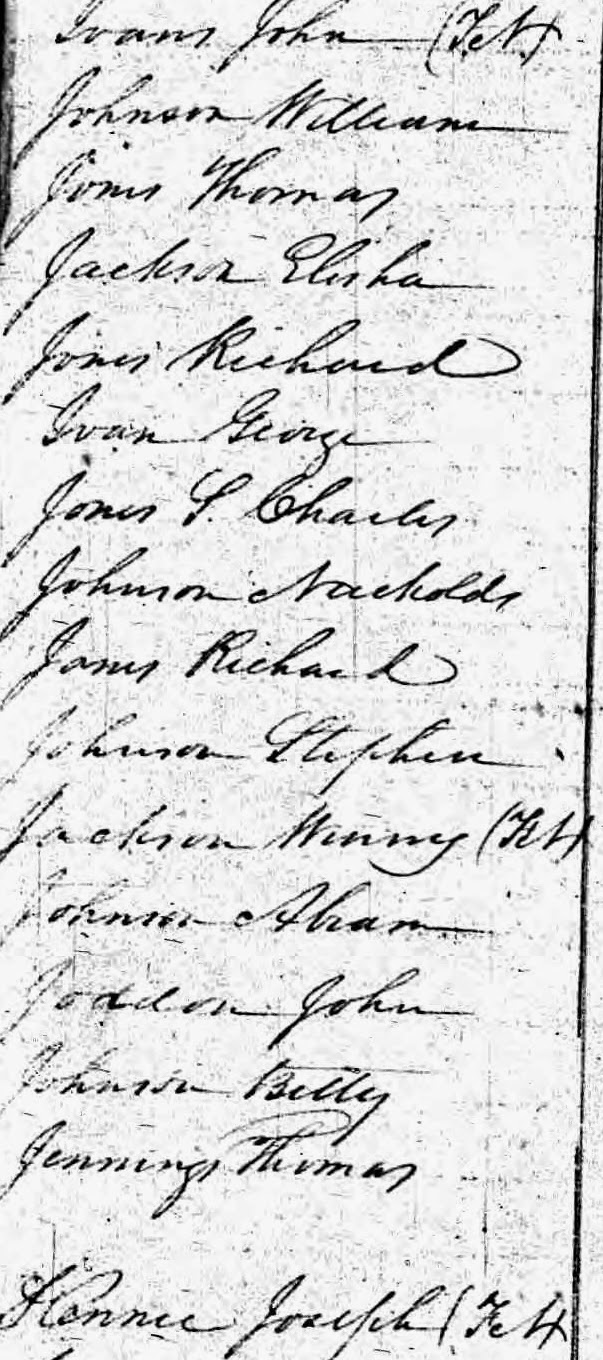 Ivans John (FcN)
Johnson William
Jones Thomas
Jackson Elisha
Jones Richard
Ivan George
Jones S. Charles
Johnson Nackolds
James Richard
Johnson Stephen
Jackson Winny (FcN)
Johnson Abram
John
Johnson Betty
Jennings Thomas
Kennee Joseph (FcN)